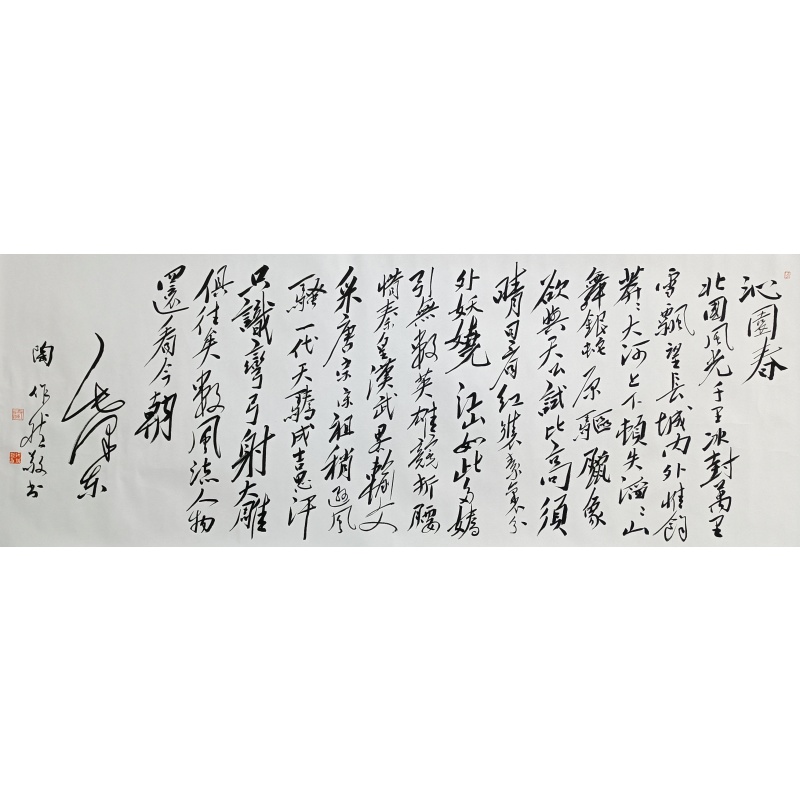 沁園春
北國風光千里冰封萬里
雪飄望長城内外惟餘
莽〻大河上下頓失滔〻山
舞銀蛇原驅臘象
欲與天公試比高須
晴日看红裝素裹分
外妖嬈江山如此多嬌
引無數英雄競折腰
惜秦皇漢武畧輸文
采唐宗宋祖稍遜風
騷一代天驕成吉思汗
只識彎弓射大雕
俱往矣數風流人物
還看今朝
毛澤东
陶作敬书